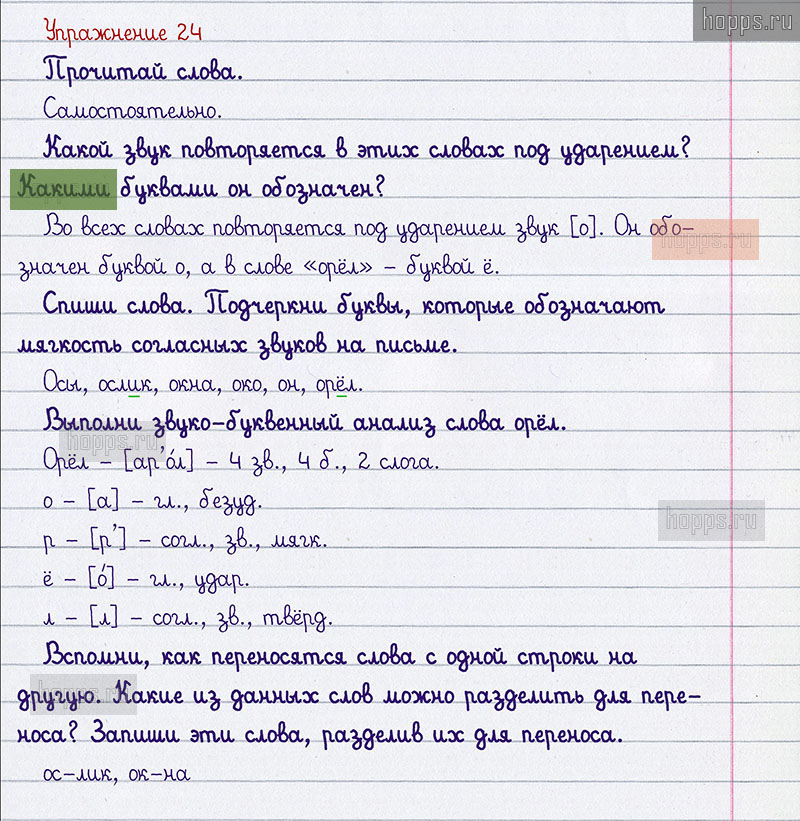 hopps.ru
Упражнение 24
Прочитай слова.
Самостоятельно.
Какой звук повторяется в этих словах под ударением?
Какими буквами он обозначен?
Во всех словах повторяется под ударением звук [о]. Он обо-
hopps.ru
значен буквой о, а в слове «орёл» – буквой ё.
Спиши слова. Подчеркни буквы, которые обозначают
мягкость согласных звуков на письме.
Осы, ослик, окна, око, он, орёл.
Выполни звуко-буквенный анализ слова орёл.
hopps.ru
Орёл – [ар’о́л] – 4 зв., 4 б., 2 слога.
о – [а] – гл., безуд.
hopps.ru
р – [р’] – согл., зв., мягк.
ё – [о́] – гл., удар.
л – [л] – согл., зв., твёрд.
Вспомни, как переносятся слова с одной строки на
hopps.ru
другую. Какие из данных слов можно разделить для пере-
носа? Запиши эти слова, разделив их для переноса.
ос-лик, ок-на